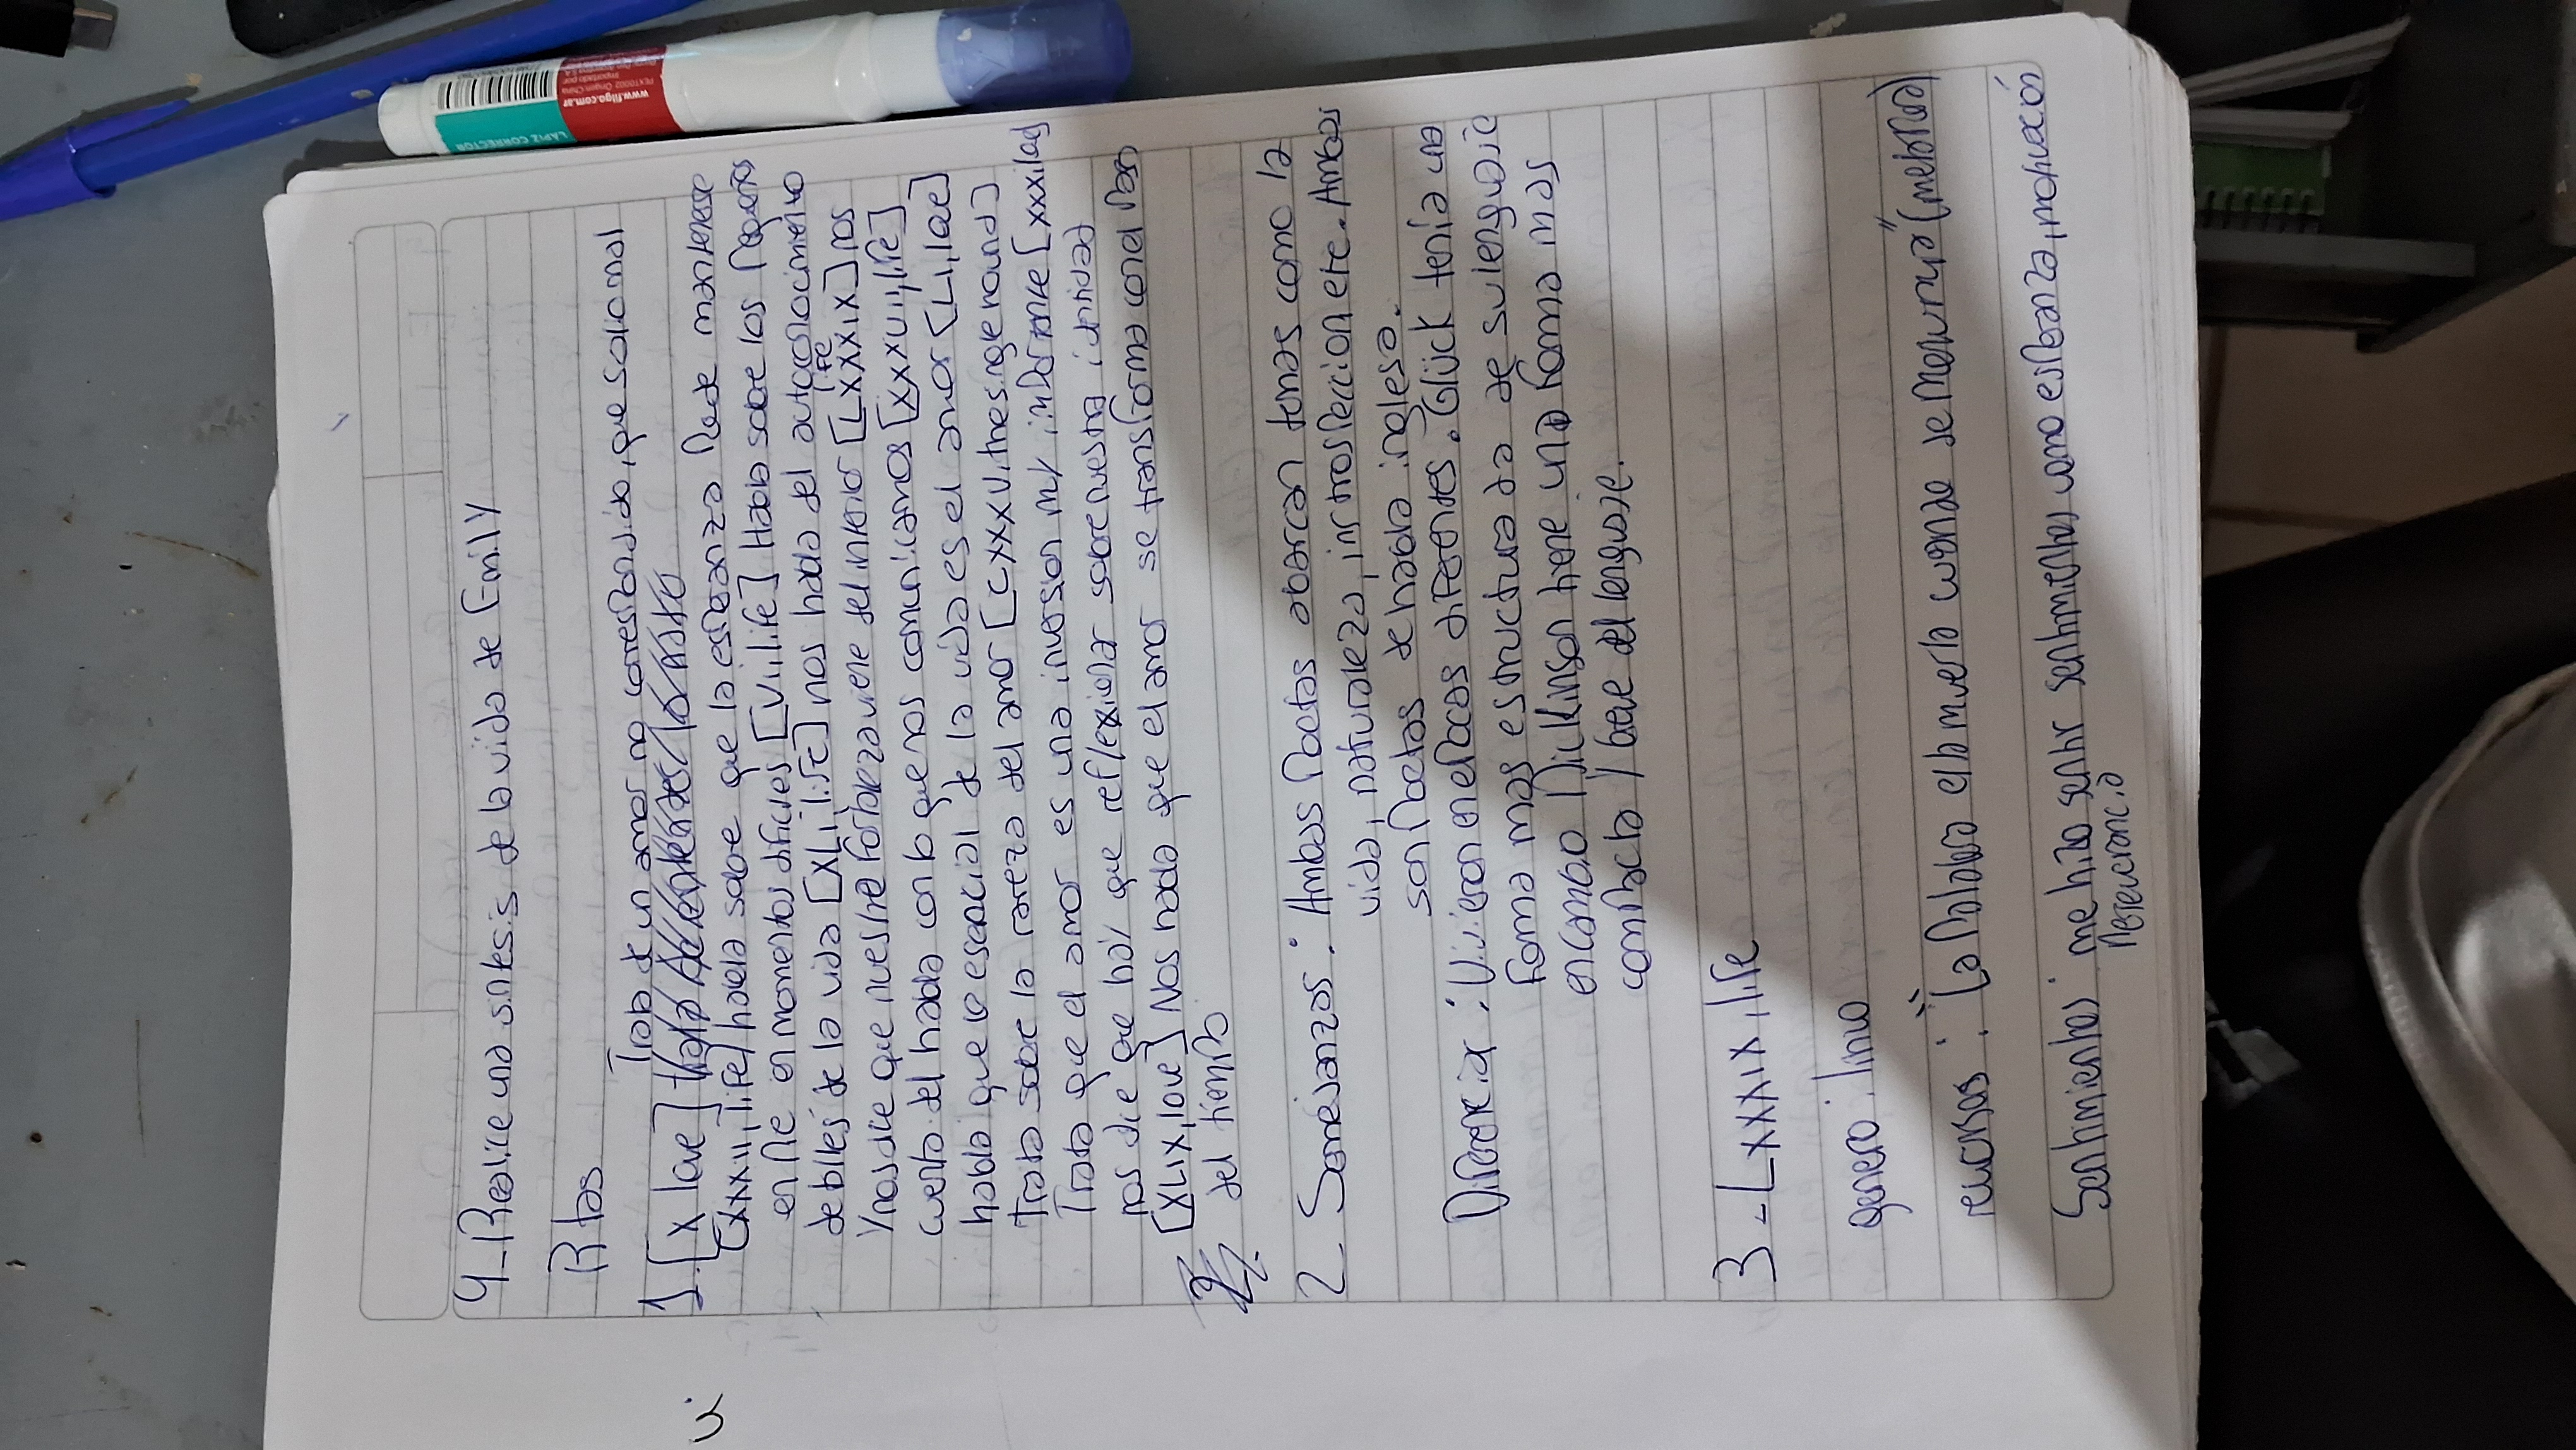 4-Realice una sintesis de la vida de Emily
Rtas
Trata de un amor no correspondido, que salio mal
1.[X love]
[XXXII, life] habla sobre que la esperanza Puede mantenerse
en Pie en momentos dificiles [VII life] Habla sobre los Pequeños
debiles de la vida [XLI life] nos habla del autoconocimiento
Y nos dice que nuestra Fortaleza viene del interior [LXXXIX life] nos
cuenta del habla con lo que nos comunicamos [XXXVII, life]
habla que lo esencial de la vida es el amor [LI, love]
Trata sobre la rareza del amor [CXXXVI, the single hound]
Trata que el amor es una inversion muy importante [XXXI, love]
nos dice que hay que reflexionar sobre nuestra identidad
[XLIX, love] Nos habla que el amor se transforma con el Paso
del tiempo
2_ Semejanzas: Ambas Poetas abarcan temas como la
vida, naturaleza, introspeccion etc. Ambas
son Poetas de habla inglesa.
Diferencia: Vivieron en ePocas diferentes. Glück tenía una
forma mas estructurada de su lenguaje
en cambio Dickinson tiene una forma mas
compacta / breve del lenguaje.
3-LXXXIX, life
genero: lirico
recursos: "La Palabra esta muerta cuando se Pronuncia" (metafora)
Sentimientos: me hizo sentir sentimientos como esperanza, motivación
Perseverancia
LAPIZ CORRECTOR
www.filgo.com.ar
Importado por: